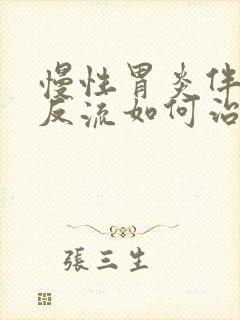 慢性胃炎伴
反流如何治
張三生